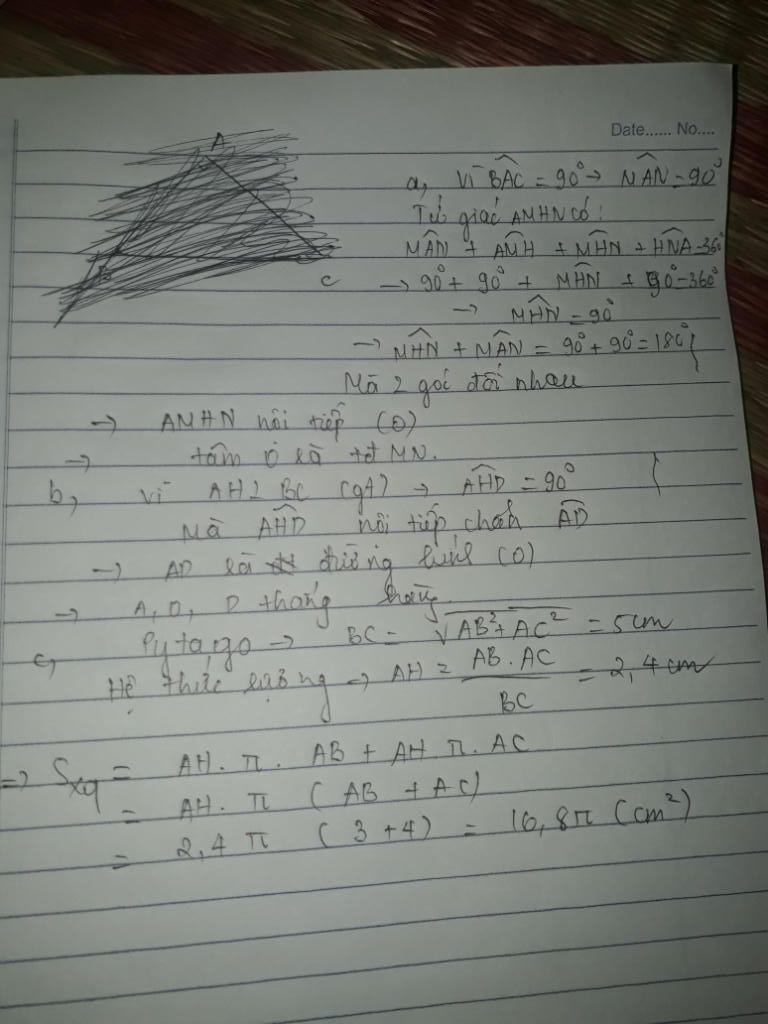 Date...... No....
A
B
C
a, Vì BÂC = 90° → MÂN = 90°
Tứ giác AMHN có:
MÂN + AM̂H + MĤN + HN̂A = 360°
→ 90° + 90° + MĤN + 90° = 360°
→ MĤN = 90°
→ MĤN + MÂN = 90° + 90° = 180° }
Mà 2 góc đối nhau
→ AMHN nội tiếp (O)
→ tâm O là tđ MN.
b, Vì AH ⊥ BC (gt) → AĤD = 90°
Mà AĤD nội tiếp chắn AD
→ AD là đường kính (O)
→ A, O, D thẳng hàng
c, Pytago → BC = √AB² + AC² = 5cm
Hệ thức lượng → AH = AB . AC / BC = 2,4 cm
=> Sxq = AH . π . AB + AH π . AC
= AH . π (AB + AC)
= 2,4 π (3 + 4) = 16,8π (cm²)